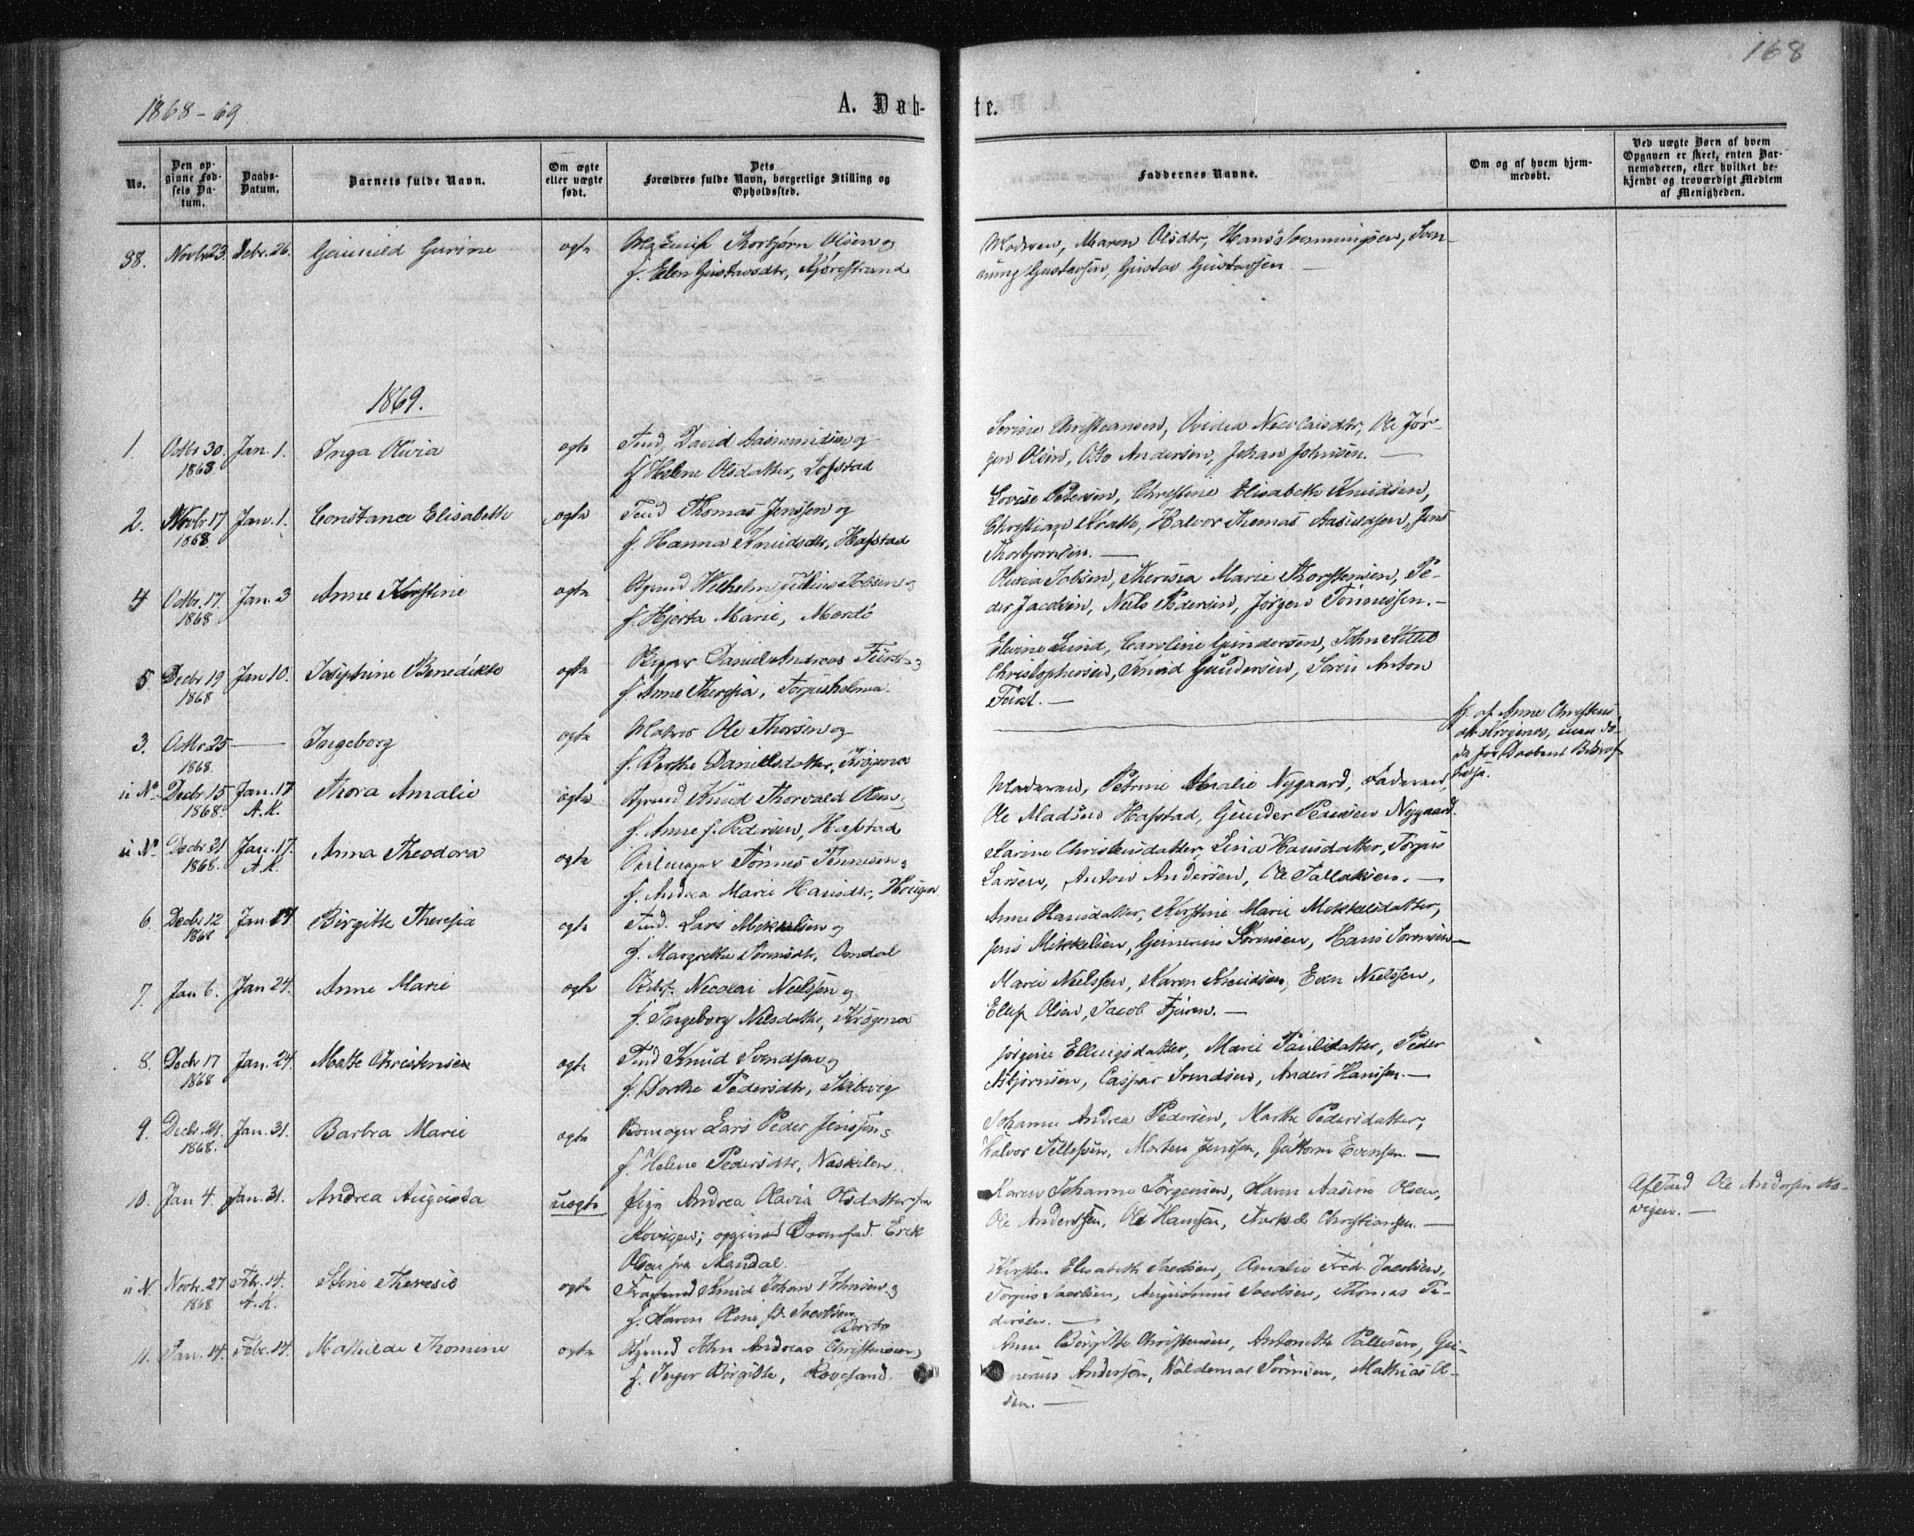 168
1868-69
A. Døb-
te.
No.
Den op-
givne Fød-
sels Da-
tum.
Daabs-
Datum.
Barnets fulde Navn.
Om ægte
eller uægte
født.
Dets
Forældres fulde Navn, borgerlige Stilling og
Opholdssted.
Faddernes Navne.
Om og af hvem hjem-
medøbt.
Ved uægte Børn af hvem
Opgaven er skeet, enten Bar-
nemoderen, eller hvilket be-
kjendt og troværdigt Medlem
af Menigheden.
38. Novbr. 23. Debr. 26. Gunild Gurine ægte Thorbjørn Olsen og
f. Elen Gustavsdtr,
Moderen, Maren Olsdtr, Hans Svenningsen, Sven-
ning Gustavsen, Gustav Gustavsen
1869.
1. Octbr 30. 1868. Jan. 1. Inga Olivia ægte Inds David Aasmundsen og
f. Helene Olsdatter, Lofstad
Serine Christiansen, Ovidia Nicolaisdtr, Ole Jør-
gen Olsen, Otto Andersen, Johan Johnsen.
2. Novbr 17 1868. Jan. 1. Constance Elisabeth ægte Inds Thomas Jenssen og
f. Hanna Knudsdtr, Hafstad
Lovise Petersen, Christine Elisabeth Knudsen,
Christian Krath, Halvor Thomas Aasuldsen, Jens
Thorbjørnsen.
4 Octbr. 17. 1868 Jan. 3 Anne Kirstine ægte Wilhelm Julius Jobsen og
f. Hjerta Marie, Merdø
Olivia Jobsen, Theresia Marie Thorstensen, Pe-
der Jacobsen, Niels Pedersen, Jørgen Tønnessen.
5 Decbr 19 1868 Jan 10. Josephine Benedikte ægte Daniel Andreas Fürst og
f. Anne Theresia, Torjusholmen
Elevine Lund, Caroline Gundersen, John Kittil
Christophersen, Knud Gundersen, Søren Anton
Fürst.
3. Octbr. 25 1868. Ingeborg ægte Matros Ole Thorsen og
f. Berthe Danielsdatter,
af Anne Christens
u No Decbr. 15 1868. Jan. 17 A.K. Thora Amalie ægte Knud Thorvald Olsen og
f. Anne f. Pedersen, Hafstad
Moderen, Petrine Amalie Nygaard, Faderen,
Ole Madsen Hafstad, Gunder Pedersen Nygaard.
u No Decbr. 21 1868. Jan. 17. A.K. Anna Theodora ægte Tønnes Tønnesen og
f. Andrea Marie Hansdtr,
Karine Christensdatter, Lina Hansdatter, Torjus
Larsen, Anton Andersen, Ole Tallaksen.
6. Decbr 12 1868 Jan. 17 Birgitte Theresia ægte Inds. Lars Mikkelsen og
f. Margrethe Sørensdtr, Omdal
Anne Hansdatter, Kirstine Marie Mikkelsdatter,
Jens Mikkelsen, Severin Sørensen, Hans Sørensen
7. Jan 6. Jan 24. Anne Marie ægte Nicolai Nielssen og
f. Ingeborg Nilsdatter,
Marie Nielssen, Karen Knudsen, Even Nielssen,
Ellef Olsen, Jacob Fjæren.
8. Decbr 17 1868 Jan. 24. Mette Christensen ægte Inds Knud Svendsen og
f. Dorthe Pedersdtr,
Jørgine Ellingsdatter, Marie Paulsdatter, Peder
Bjørnsen, Caspar Svendsen, Anders Hansen.
9. Decbr. 21. 1868. Jan. 31. Barbra Marie ægte Lars Peder Jenssen og
f. Helene Pedersdtr, Naskilen
Johanne Andrea Pedersen, Marthe Pedersdatter,
Halvor Tellefsen, Morten Jenssen, Guttorm Evensen.
10. Jan 4. Jan. 31. Andrea Augusta uægte Pige Andrea Olavia Olsdatter fra
Kovigen; opgivne Barnefad. Erik
Olsen fra Mandal.
Karen Johanne Jørgensen, Karen Aasine Olsen,
Ole Anderssen, Ole Hansen, Christiansen.
Af Inds Ole Andersen Ko-
vigen.
u N. Novbr. 27 1868 Febr. 14. A.K. Stine Theresie ægte Knud Johan Johnsen og
f. Karen Oline f. Jacobsen
Kirsten Elisabeth Jacobsen, Amalie Fred. Jacobsen,
Torjus Jacobsen, Augustinus Jacobsen, Thomas Pe-
dersen.
11. Jan. 14. Febr. 14. Mathilde Thomine ægte John Andreas Christensen
f. Inger Birgitte, Revesand
Anne Birgitte Christensen, Antonette Pallesen,
Andersen, Waldemar Sørensen, Mathias Ol-
sen.